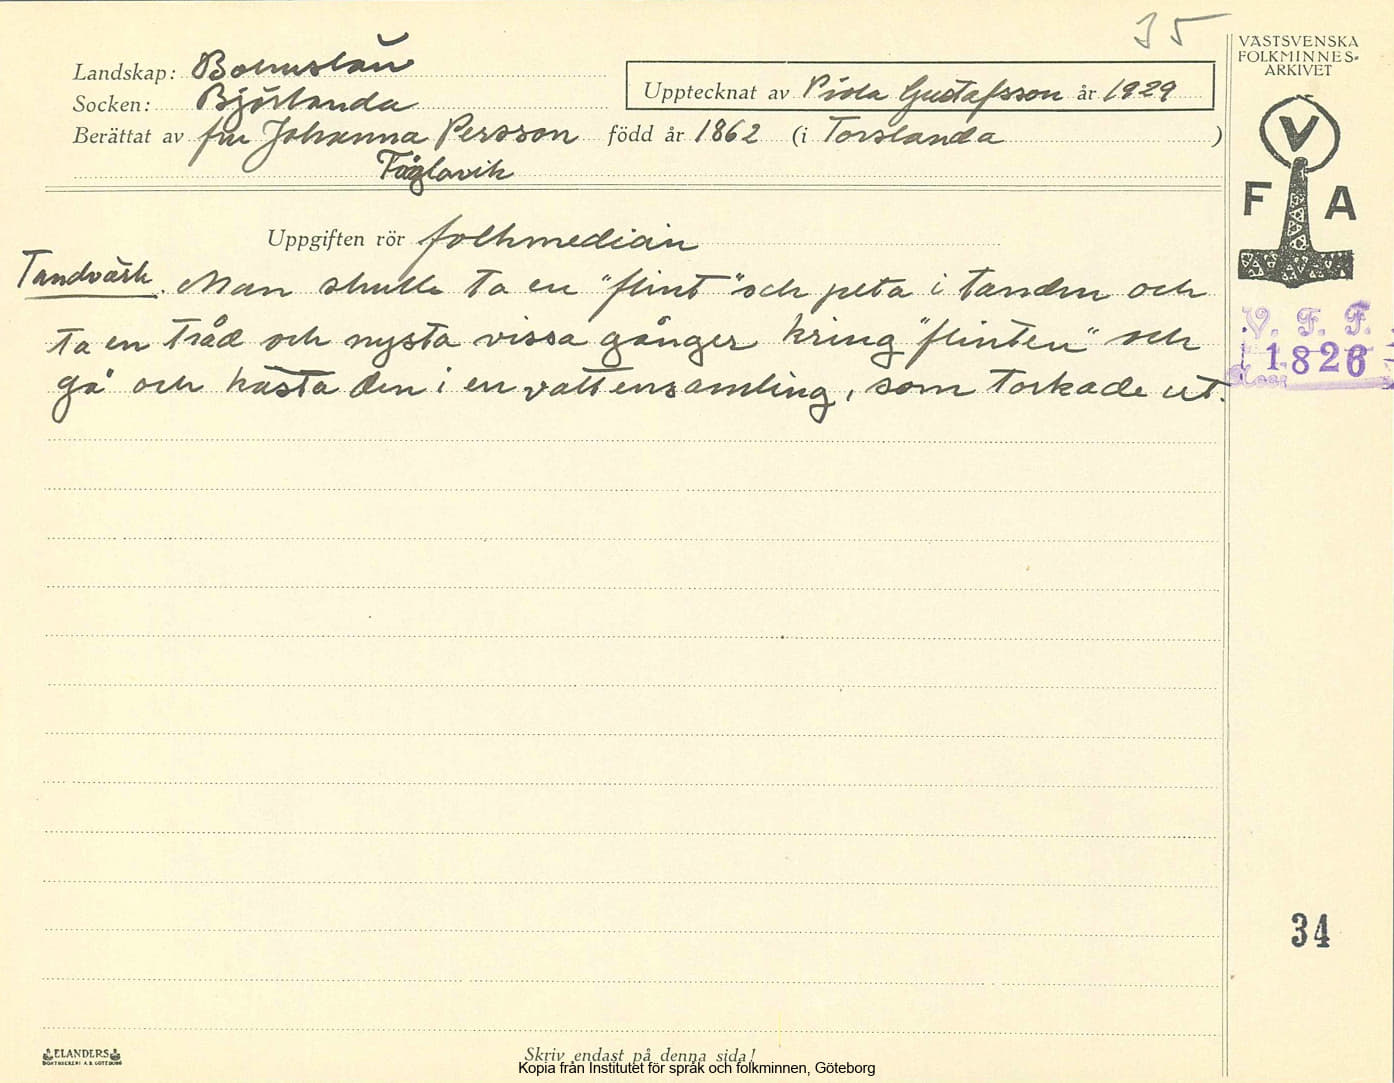 35
VÄSTSVENSKA
FOLKMINNES-
ARKIVET
Landskap: Bohuslän
Socken: Björlanda
Upptecknat av Viola Gustafsson år 1929
Berättat av fru Johanna Persson född år 1862 (i Torslanda )
Fåglavik
V
F A
Uppgiften rör folkmedicin
Tandvärk. Man skulle ta en "flint" och peta i tanden och
ta en tråd och nysta vissa gånger kring "flinten" och
gå och kasta den i en vattensamling, som torkade ut.
V. F. F.
1826
34
ELANDERS
BOKTRYCKERI A.B. GÖTEBORG
Skriv endast på denna sida!
Kopia från Institutet för språk och folkminnen, Göteborg